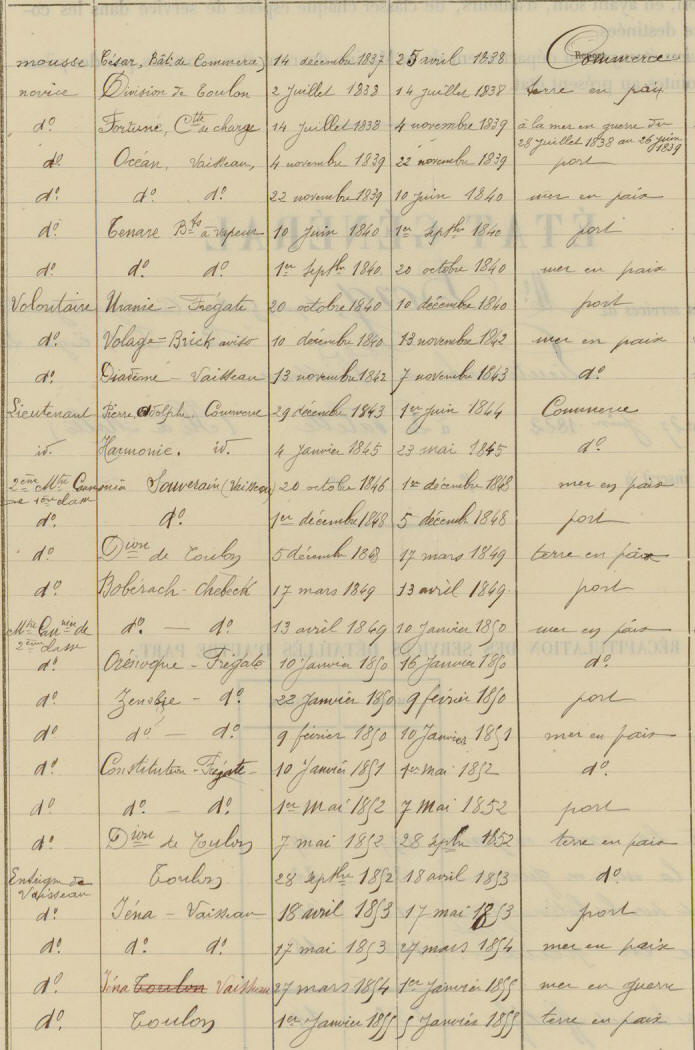 mousse César, Bât. de Commerce) 14 décembre 1837 25 avril 1838 Commerce
novice Division de Toulon 2 Juillet 1838 14 juillet 1838 terre en paix
do. Fortune, Cte de charge 14 Juillet 1838 4 novembre 1839 à la mer en guerre du 28 Juillet 1838 au 26 juin 1839
do. Océan, Vaisseau, 4 novembre 1839 22 novembre 1839 port
do. do. do. 22 novembre 1839 10 Juin 1840 mer en paix
do. Tenare Bto à vapeur 10 Juin 1840 1er Septbre 1840 port
do. do. do. 1er Septbre 1840 20 octobre 1840 mer en paix
Volontaire Uranie - Frégate 20 octobre 1840 10 décembre 1840 port
do. Volage = Brick aviso 10 décembre 1840 13 novembre 1842 mer en paix
do. Diadème - Vaisseau 13 novembre 1842 7 novembre 1843 do.
Lieutenant Pierre, Adolphe, Commerce 29 décembre 1843 1er Juin 1844 Commerce
id. Harmonie. id. 4 Janvier 1845 23 mai 1845 do.
2ème Mtre Canonnier Souverain (Vaisseau) 20 octobre 1846 1er décembre 1848 mer en paix
de 1ère classe
do. do. 1er décembre 1848 5 décemb 1848 port
do. Dion de Toulon 5 décemb 1848 17 mars 1849 terre en paix
do. Bobérach - Chebeck 17 mars 1849 13 avril 1849. port
Mtre Cannier de 2ème classe do. - do. 13 avril 1849 10 Janvier 1850 mer en paix
do. Orénoque - Frégate 10 Janvier 1850 16 Janvier 1850 do.
do. Zenobie - do. 22 Janvier 1850 9 février 1850 port
do. do. - do. 9 février 1850 10 Janvier 1851 mer en paix
do. Constitution - Frégate - 10 Janvier 1851 1er mai 1852 do.
do. do. - do. 1er Mai 1852 7 Mai 1852 port
do. Dion de Toulon 7 mai 1852 28 septbre 1852 terre en paix
Enseigne de Vaisseau Toulon 28 septbre 1852 18 avril 1853 do.
do. Iéna - Vaisseau 18 avril 1853 17 mai 1853 port
do. do. do. 17 mai 1853 27 mars 1854 mer en paix
do. Iéna Toulon Vaisseau 27 mars 1854 1er Janvier 1855 mer en guerre
do. Toulon 1er Janvier 1855 5 Janvier 1855 terre en paix